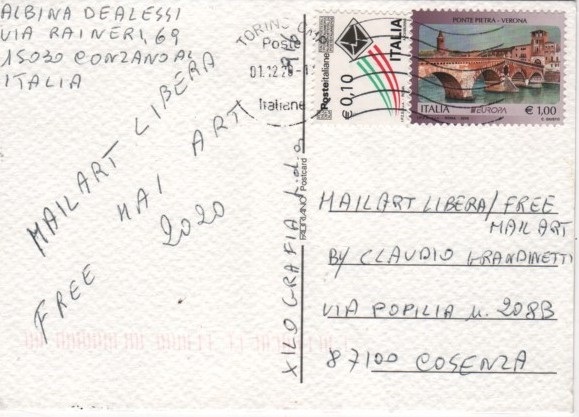 ALBINA DEALESSI
VIA RAINERI, 69
15030 CONZANO AL
ITALIA
MAILART LIBERA
FREE MAI ART
2020
XILOGRAFIA
FABRIANO Postcard
TORINO
Poste
01.12.20
Italiane
Posteitaliane
€ 0,10
ITALIA
PONTE PIETRA - VERONA
ITALIA
EUROPA
€ 1,00
MAILART LIBERA/FREE
MAIL ART
BY CLAUDIO GRANDINETTI
VIA POPILIA n. 208B
87100 COSENZA